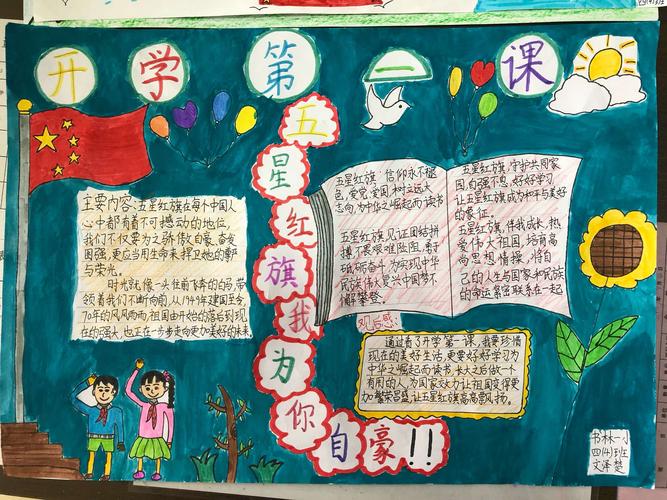 开学第一课
五星红旗我为你自豪!!
主要内容:五星红旗在每个中国人
心中都有着不可撼动的地位,
我们不仅要为之骄傲自豪、奋发
图强,更应当用生命来捍卫她的尊严
与荣光。
时光就像一头往前飞奔的白马,带
领着我们不断向前,从1949年建国至今,
70年的风风雨雨,祖国由开始的落后到现
在的强大,也正在一步步走向更加美好的未来。
五星红旗,信仰永不褪
色,爱党、爱国,树立远大
志向,为中华之崛起而读书
五星红旗,见证团结拼
搏,不畏艰难险阻,勇于
砥砺奋斗,为实现中华
民族伟大复兴中国梦不
懈攀登。
五星红旗,守护共同家
园,自强不息,好好学习
让五星红旗成为和平与美好
的象征。
五星红旗,伴我成长,热
爱伟大祖国,培育高
尚思想情操,将自
己的人生与国家和民族
的命运紧密联系在一起
观后感:
通过看了开学第一课,我要珍惜
现在的美好生活,更要好好学习为
中华之崛起而读书,长大之后做一个
有用的人,为国家效力,让祖国变得更
加繁荣昌盛,让五星红旗高高飘扬。
书林一小
四(4)班
文泽楚